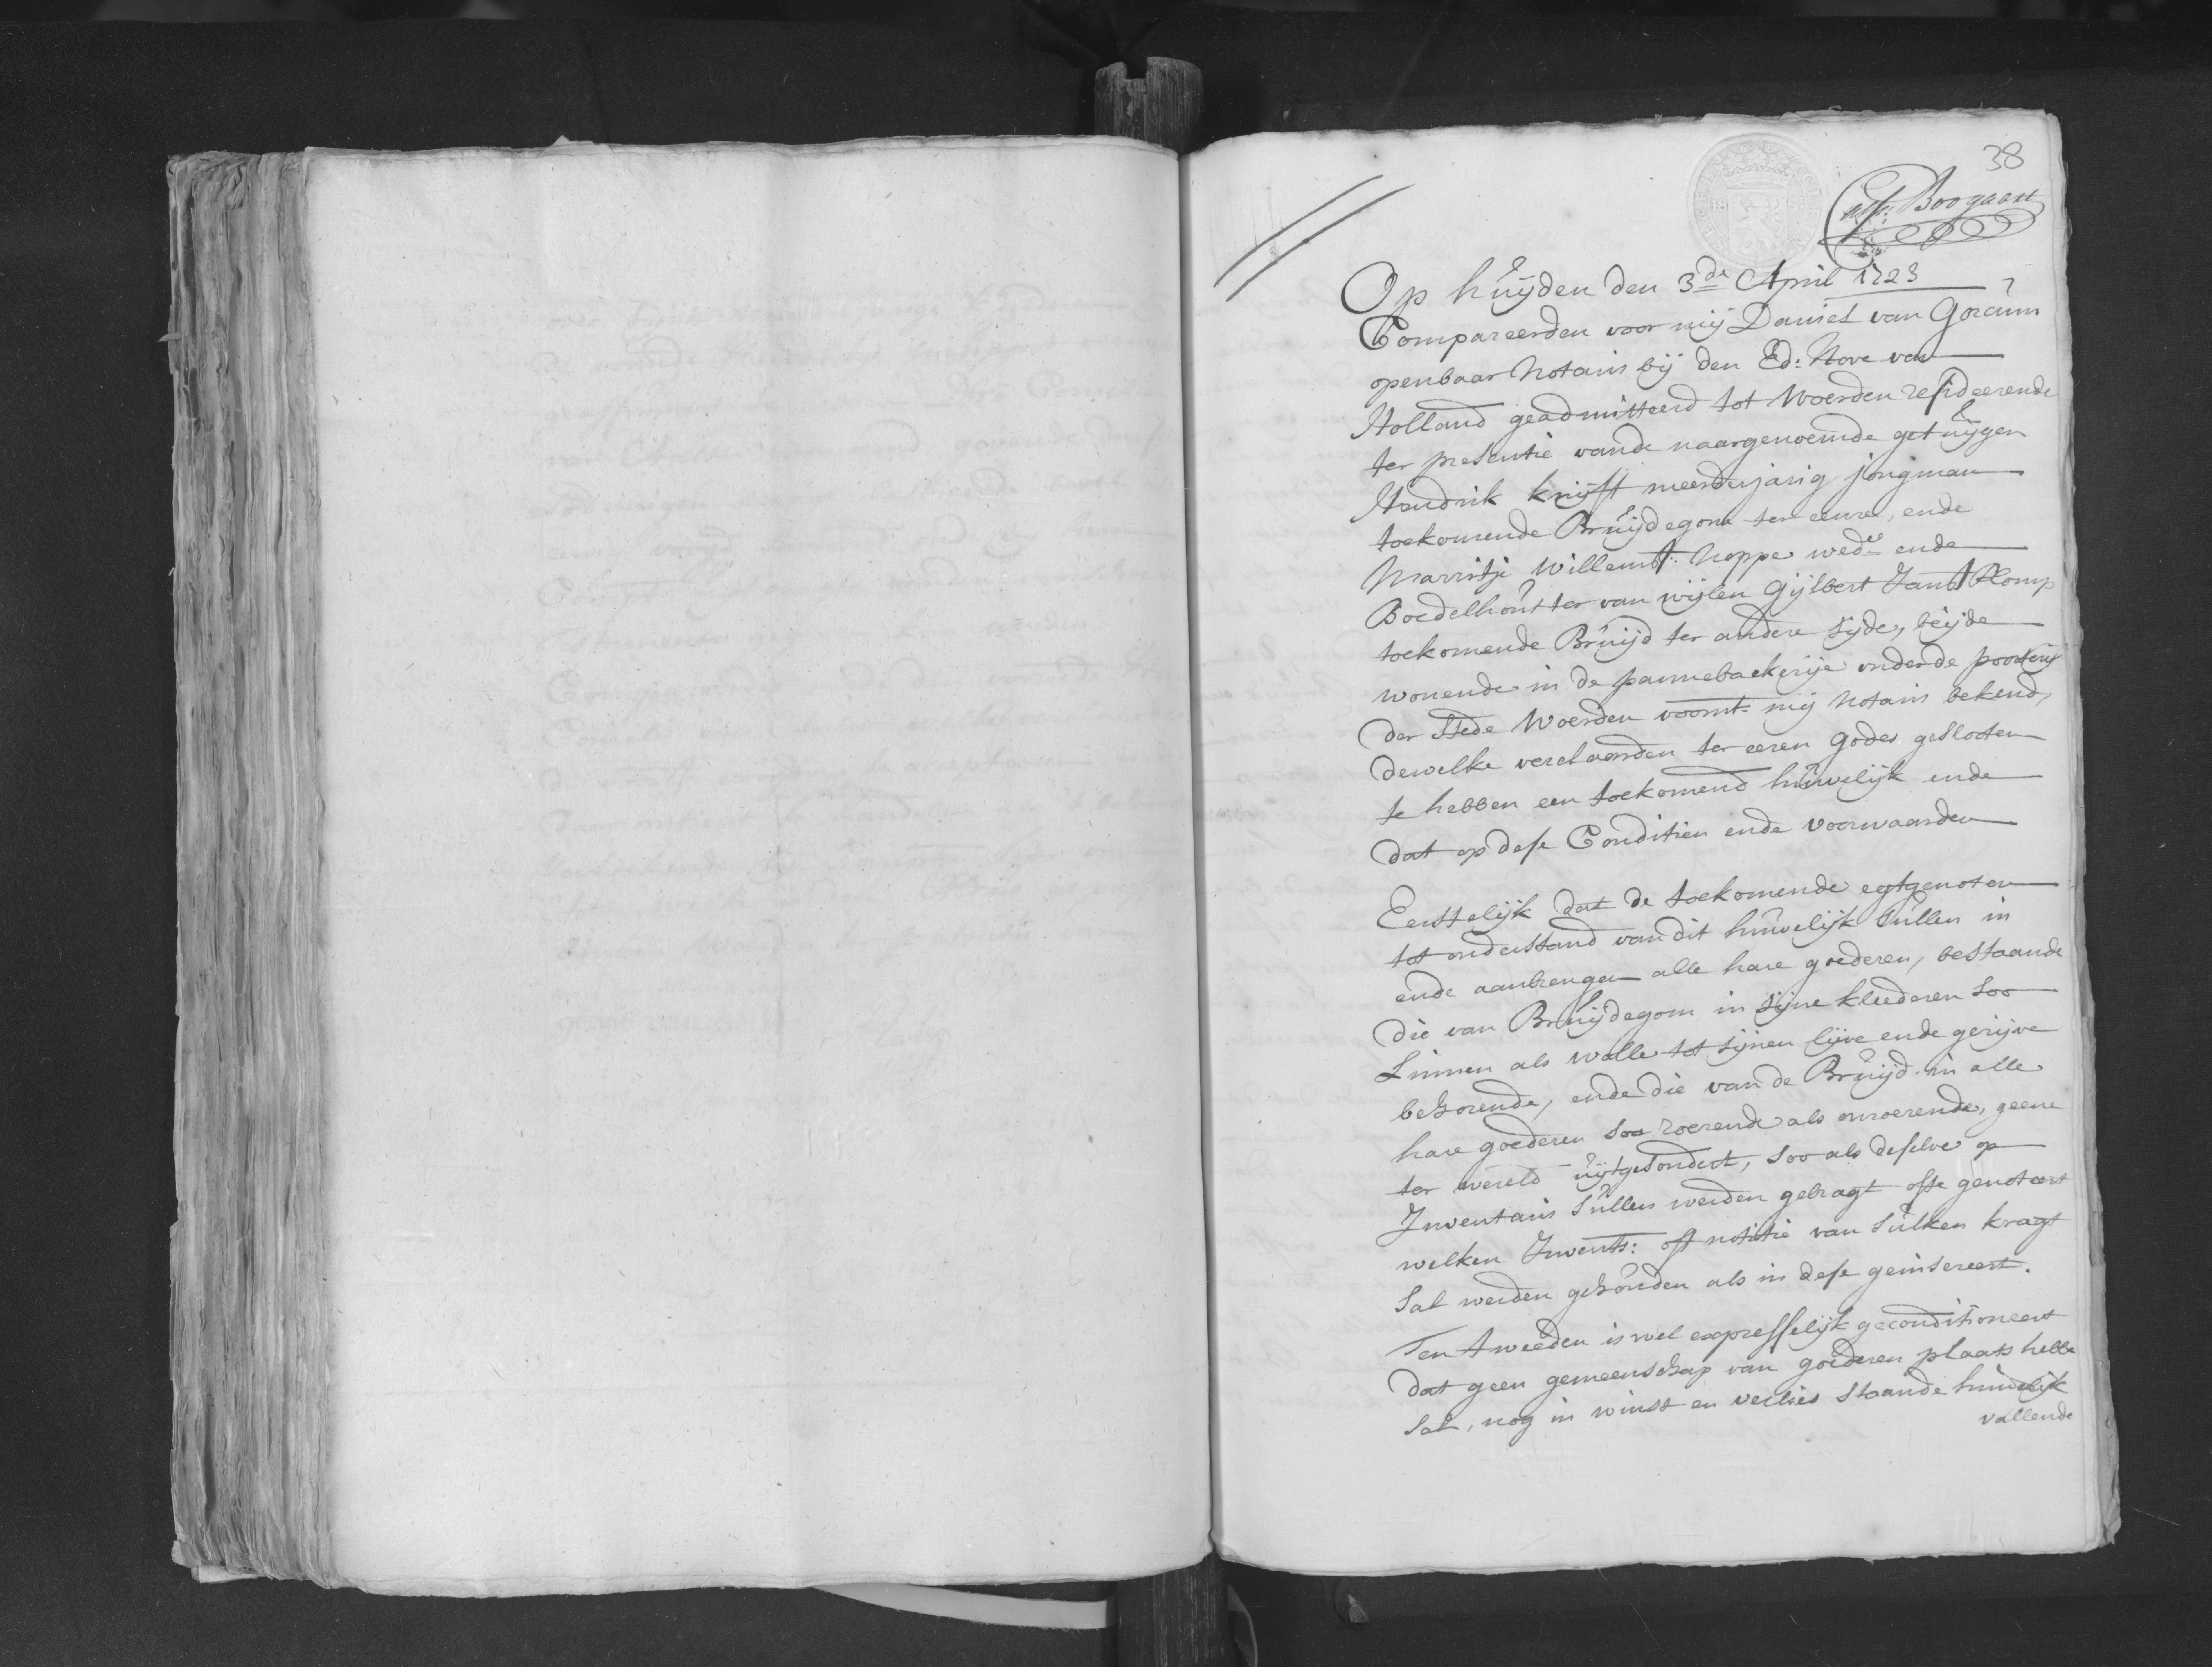 38
Boogaert
Op huijden den 3de April 1723
Compareerden voor mij Daniel van Gorcum
openbaar Notaris bij den Ed: Hove van
Holland geadmitteerd tot Woerden resideerende
ter presentie vande naargenoemde getuijgen
Hendrik knijft meerderjarig jongman
toekomende Bruijdegom ter eenre, ende
Marritje Willems Noppe wede ende
Boedelhoutster van wijlen Gijsbert Jans Plomp
toekomende Bruijd ter andere sijde, beijde
wonende in de pannebackerije onder de poorterij
der Stede Woerden voornt: mij Notaris bekend,
dewelke verclaarden ter eeren Godes gesloten
te hebben een toekomend huwelijk ende
dat op dese Conditien ende voorwaarden
Eerstelijk dat de toekomende egtgenoten
tot onderstand van dit huwelijk sullen in
ende aanbrengen alle hare goederen, bestaande
die van Bruijdegom in sijne kleederen soo
Linnen als wolle tot sijnen lijve ende gerijve
behorende, ende die van de Bruijd in alle
hare goederen soo roerende als onroerende, geene
ter wereld uijtgesondert, soo als deselve op
Inventaris sullen werden gebragt ofte genoteert
welken Invents: oft notitie van sulken kragt
sal werden gehouden als in dese geinsereert.
Ten tweeden is wel expresselijk geconditioneert
dat geen gemeenschap van goederen plaats hebbe
sal, nog in winst en verlies staande huwelijk
vallende